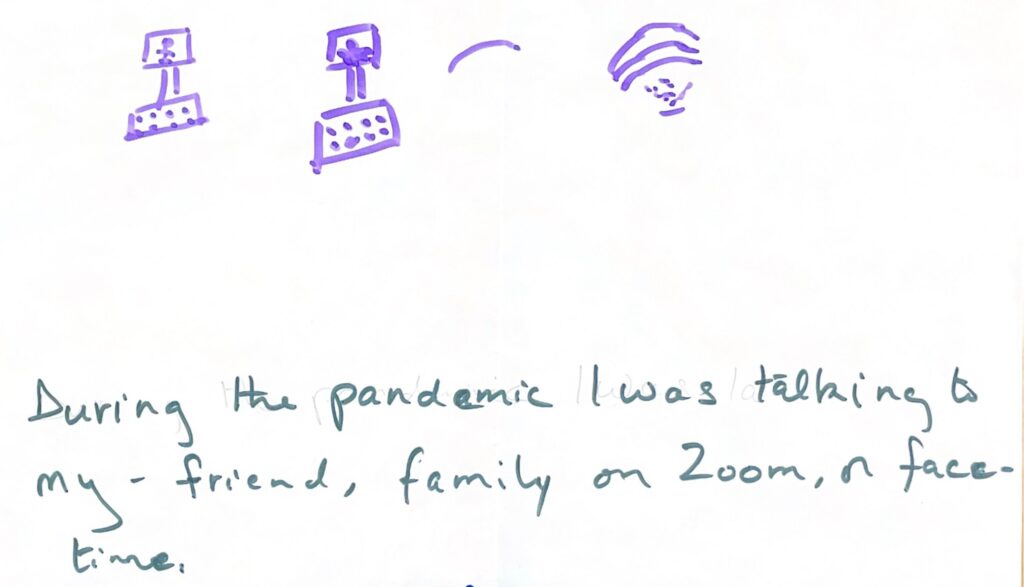 During the pandemic I was talking to
my - friend, family on Zoom, or face-
time.